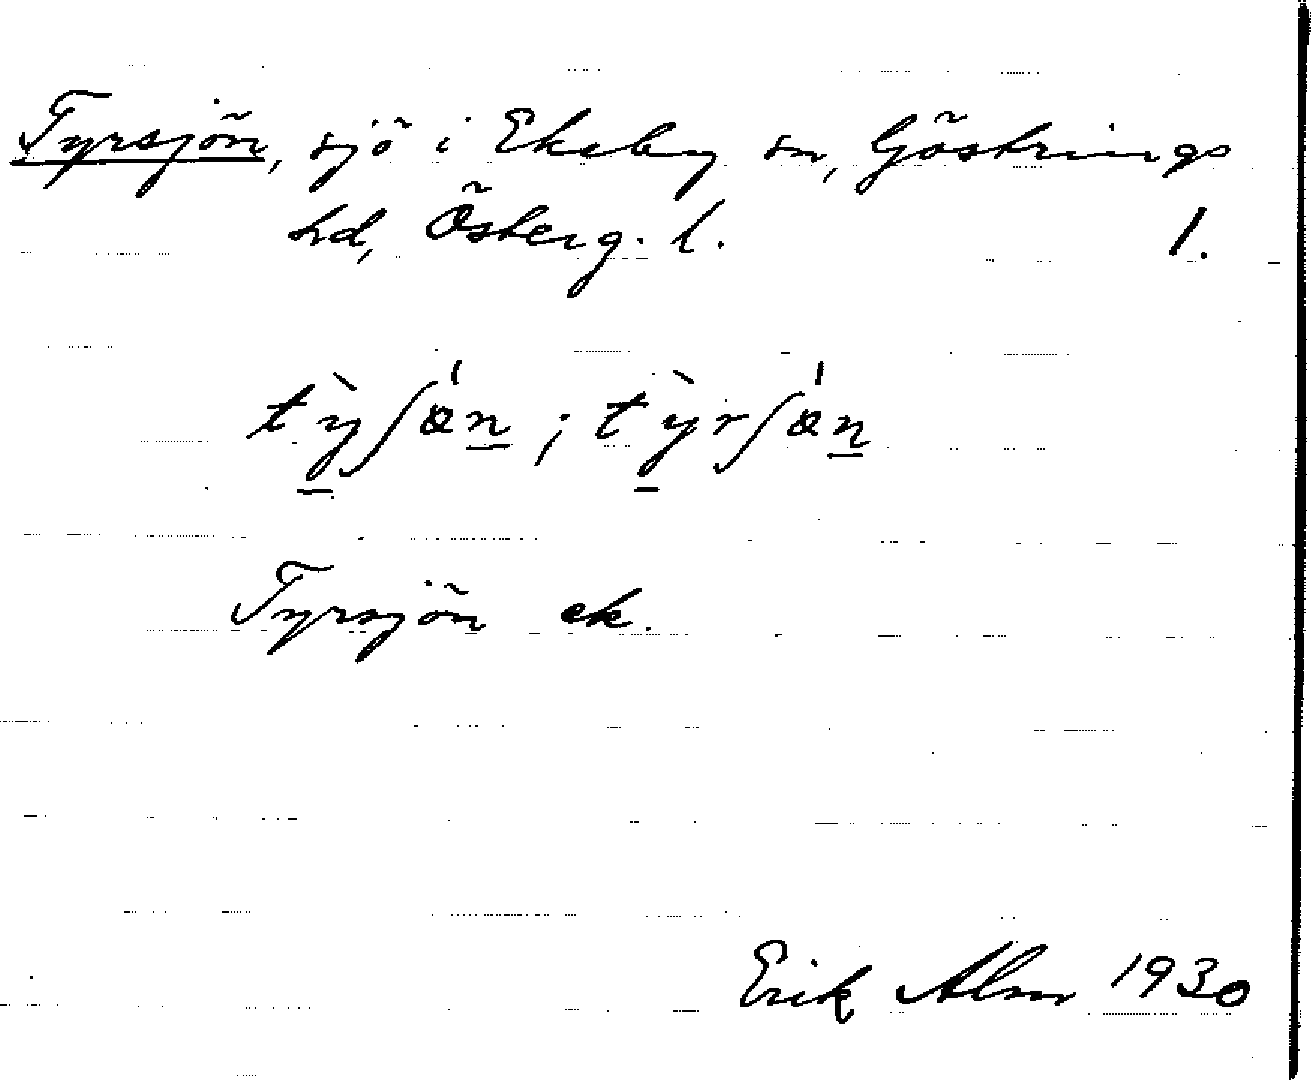 Tyrsjön, sjö i Ekeby sn, Göstrings
hd, Österg. l. 1.
tỳʃǿn ; tỳrʃǿn
Tyrsjön ek.
Erik Alm 1930